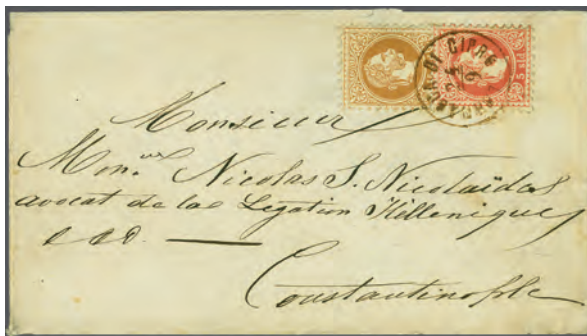 DI CIPRO
5 sld
Monsieur
Mon.ur Nicolas S. Nicolaïdes
avocat de la Legation Hélleniques
Constantinople